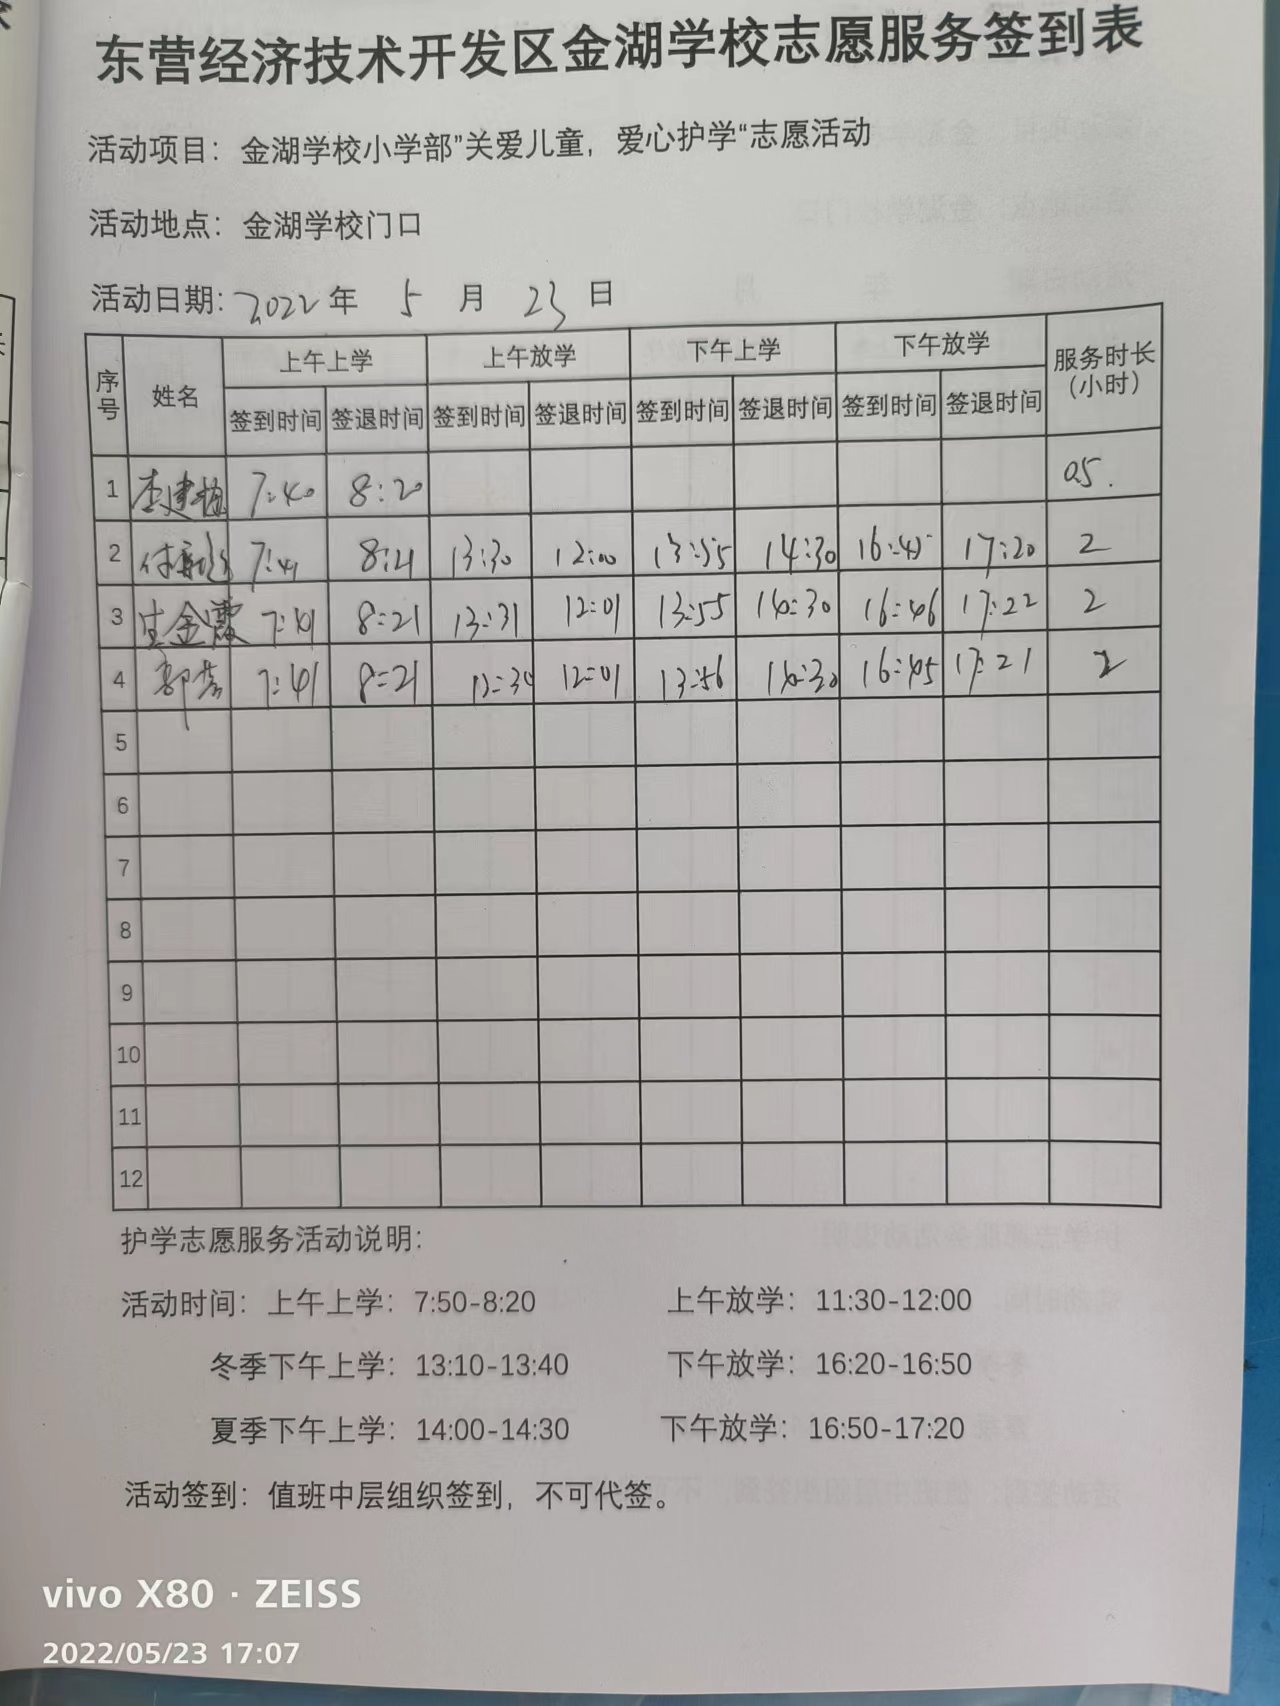 东营经济技术开发区金湖学校志愿服务签到表
活动项目：金湖学校小学部”关爱儿童，爱心护学“志愿活动
活动地点：金湖学校门口
活动日期：2022年 5 月 23 日
序号 姓名 上午上学 上午放学 下午上学 下午放学 服务时长（小时）
签到时间 签退时间 签到时间 签退时间 签到时间 签退时间 签到时间 签退时间
1 李建 7:40 8:20 0.5.
2 付 7:41 8:21 13:30 12:00 13:55 14:30 16:45 17:20 2
3 生金霞 7:41 8:21 13:31 12:01 13:55 14:30 16:46 17:22 2
4 郭 7:41 8:21 12:30 12:01 13:56 14:30 16:45 17:21 2
5
6
7
8
9
10
11
12
护学志愿服务活动说明：
活动时间：上午上学：7:50-8:20 上午放学：11:30-12:00
冬季下午上学：13:10-13:40 下午放学：16:20-16:50
夏季下午上学：14:00-14:30 下午放学：16:50-17:20
活动签到：值班中层组织签到，不可代签。
vivo X80 · ZEISS
2022/05/23 17:07